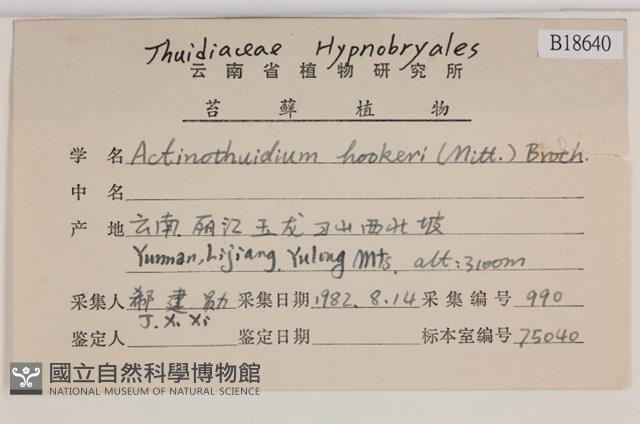 Thuidiaceae Hypnobryales
B18640
云南省植物研究所
苔藓植物
学名 Actinothuidium hookeri (Mitt.) Broth.
中名
产地 云南 丽江 玉龙 山西北坡
Yunnan, Lijiang, Yulong Mts, alt: 3100m
采集人 郗建勋 采集日期 1982.8.14 采集编号 990
J. X. Xi
鉴定人 鉴定日期 标本室编号 75040
國立自然科學博物館
NATIONAL MUSEUM OF NATURAL SCIENCE